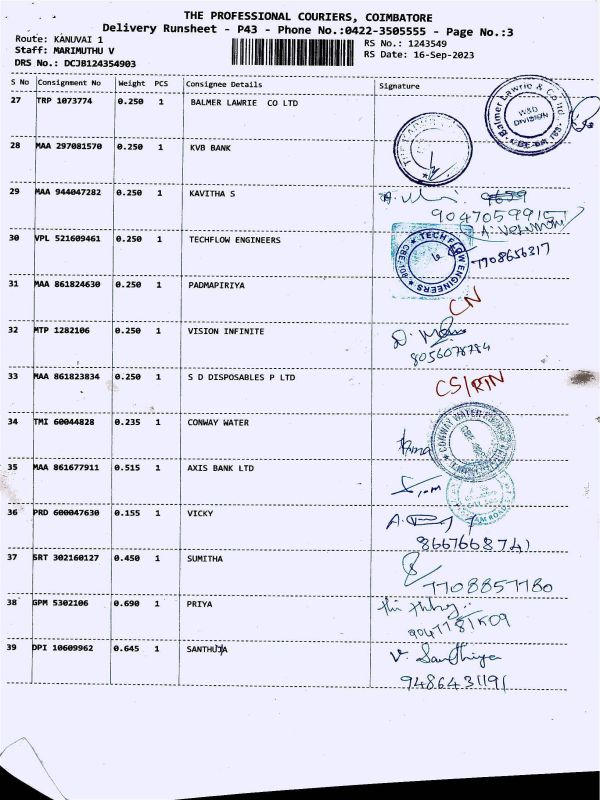 THE PROFESSIONAL COURIERS, COIMBATORE
Delivery Runsheet - P43 - Phone No.:0422-3505555 - Page No.:3
Route: KANUVAI 1
RS No.: 1243549
Staff: MARIMUTHU V
RS Date: 16-Sep-2023
DRS No.: DCJB124354903
S No Consignment No Weight PCS Consignee Details Signature
27 TRP 1073774 0.250 1 BALMER LAWRIE CO LTD
Balmer Lawrie & Co ltd
DIVISION
28 MAA 297081570 0.250 1 KVB BANK
29 MAA 944047282 0.250 1 KAVITHA S
30 VPL 521609461 0.250 1 TECHFLOW ENGINEERS
TECHFLOW ENGINEERS
7708656317
31 MAA 861824630 0.250 1 PADMAPIRIYA
CN
32 MTP 1282106 0.250 1 VISION INFINITE
33 MAA 861823834 0.250 1 S D DISPOSABLES P LTD
CS/RTN
34 TMI 60044828 0.235 1 CONWAY WATER
CONWAY WATER
35 MAA 861677911 0.515 1 AXIS BANK LTD
36 PRD 600047630 0.155 1 VICKY
8667668741
37 SRT 302160127 0.450 1 SUMITHA
7708857780
38 GPM 5302106 0.690 1 PRIYA
39 DPI 10609962 0.645 1 SANTHUJA
V. Sandhiya
9486431191